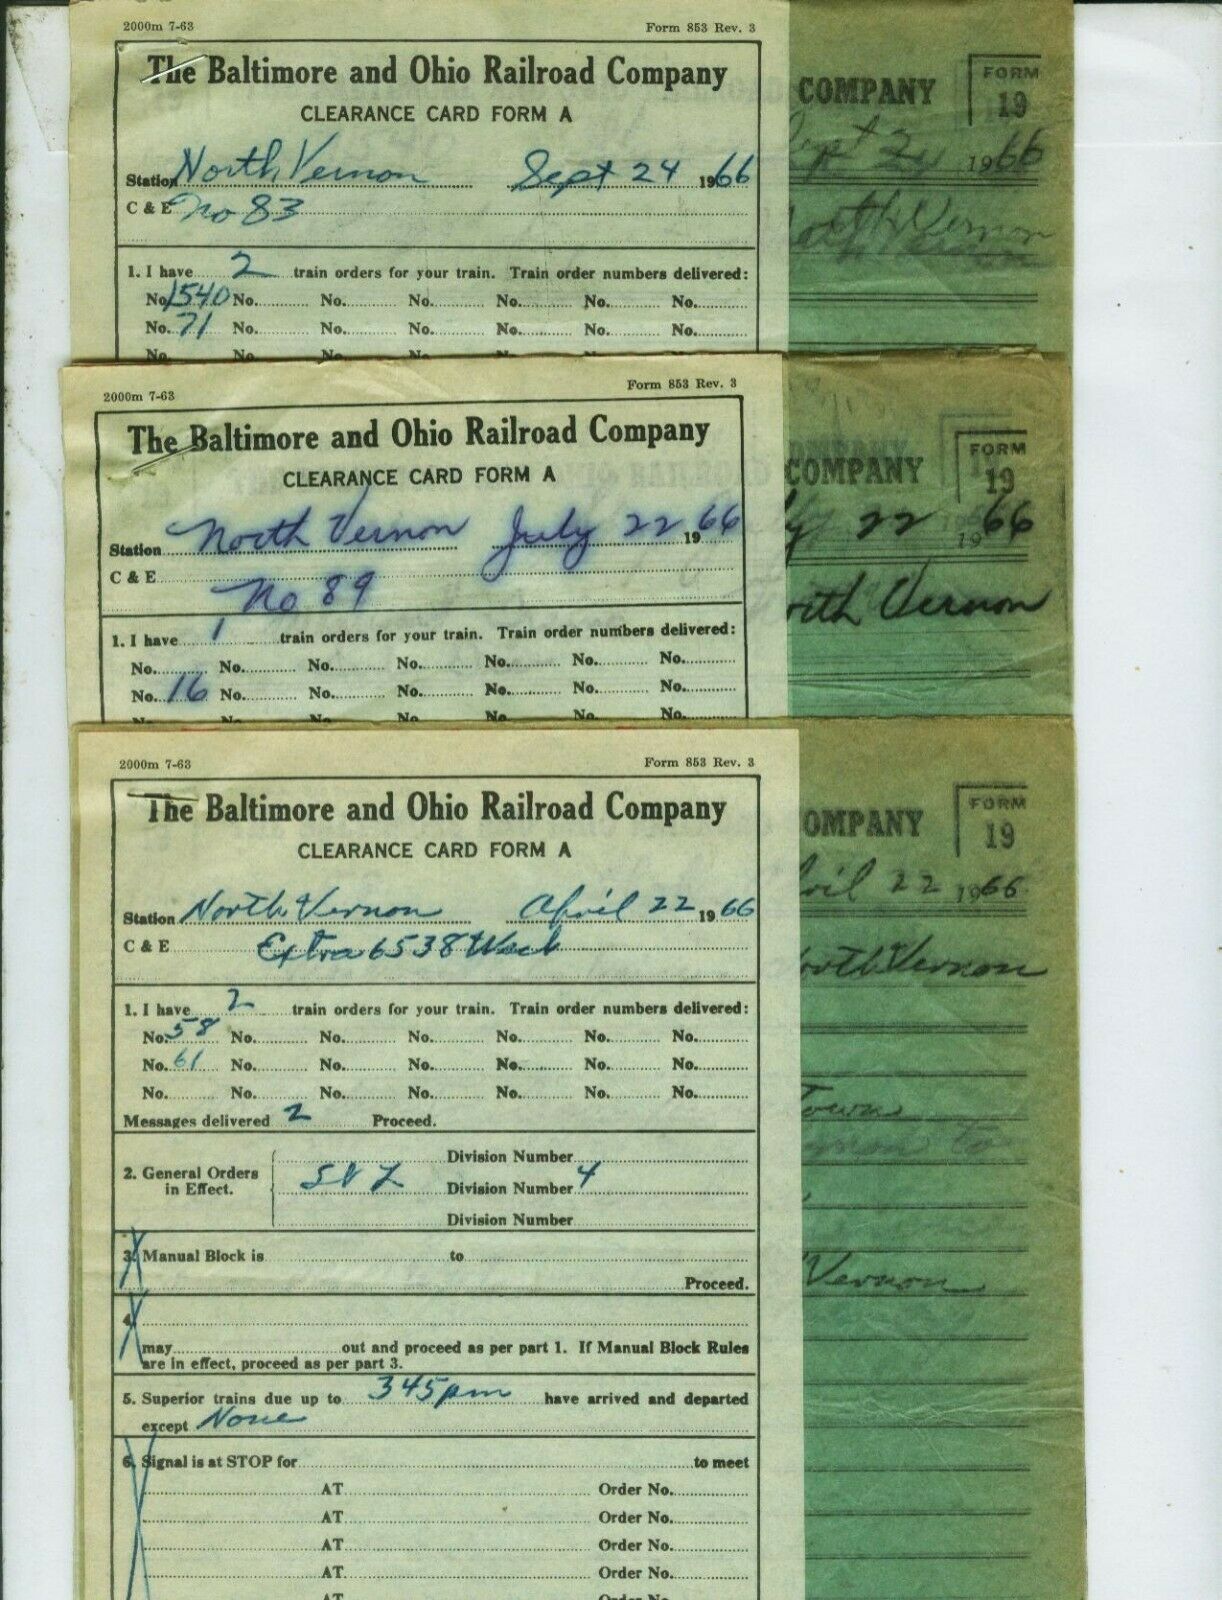 2000m 7-63 Form 853 Rev. 3
The Baltimore and Ohio Railroad Company
CLEARANCE CARD FORM A
Station North Vernon Sept 24 1966
C & E No 83
1. I have 2 train orders for your train. Train order numbers delivered:
No. 1540 No. No. No. No. No. No.
No. 71 No. No. No. No. No. No.
No. No. No. No. No. No. No.
COMPANY FORM 19
Sept 24 1966
North Vernon
2000m 7-63 Form 853 Rev. 3
The Baltimore and Ohio Railroad Company
CLEARANCE CARD FORM A
Station North Vernon July 22 1966
C & E
No 89
1. I have 1 train orders for your train. Train order numbers delivered:
No. No. No. No. No. No. No.
No. 16 No. No. No. No. No. No.
No. No. No. No. No. No. No.
COMPANY FORM 19
y 22 1966
rth Vernon
2000m 7-63 Form 853 Rev. 3
The Baltimore and Ohio Railroad Company
CLEARANCE CARD FORM A
Station North Vernon April 22 1966
C & E Extra 6538 West
1. I have 2 train orders for your train. Train order numbers delivered:
No. 58 No. No. No. No. No. No.
No. 61 No. No. No. No. No. No.
No. No. No. No. No. No. No.
Messages delivered 2 Proceed.
2. General Orders in Effect.
Division Number
St L Division Number 4
Division Number
3. Manual Block is to
Proceed.
4.
may out and proceed as per part 1. If Manual Block Rules
are in effect, proceed as per part 3.
5. Superior trains due up to 345pm have arrived and departed
except None
6. Signal is at STOP for to meet
AT Order No.
AT Order No.
AT Order No.
AT Order No.
AT Order No.
OMPANY FORM 19
ril 22 1966
orth Vernon
Town
rnon to
Vernon